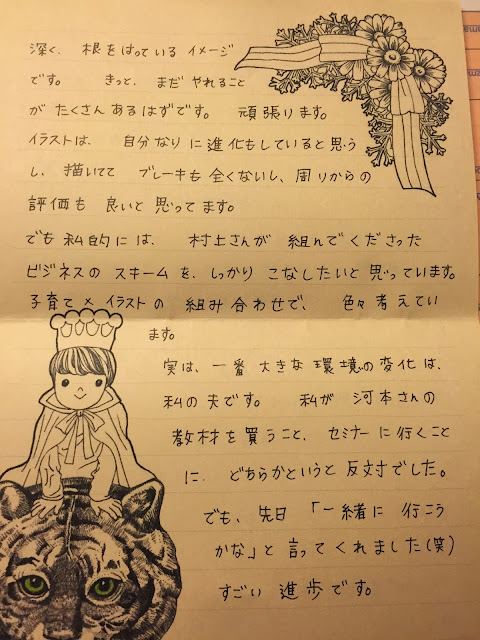 深く、根をはっているイメージ
です。 きっと、まだ やれること
が たくさん あるはずです。 頑張ります。
イラストは、 自分なりに進化もしていると思う
し、描いてて ブレーキも 全くないし、周りからの
評価も 良いと 思ってます。
でも 私的には、 村上さんが 組んでくださった
ビジネスの スキームを、しっかり こなしたいと 思っています。
子育て×イラストの 組み合わせで、 色々考えてい
ます。
実は、一番 大きな 環境の変化は、
私の夫です。 私が 河本さんの
教材を 買うこと、セミナーに行くこと
に、どちらかというと 反対でした。
でも、先日 「一緒に 行こう
かな」と 言ってくれました(笑)
すごい 進歩です。